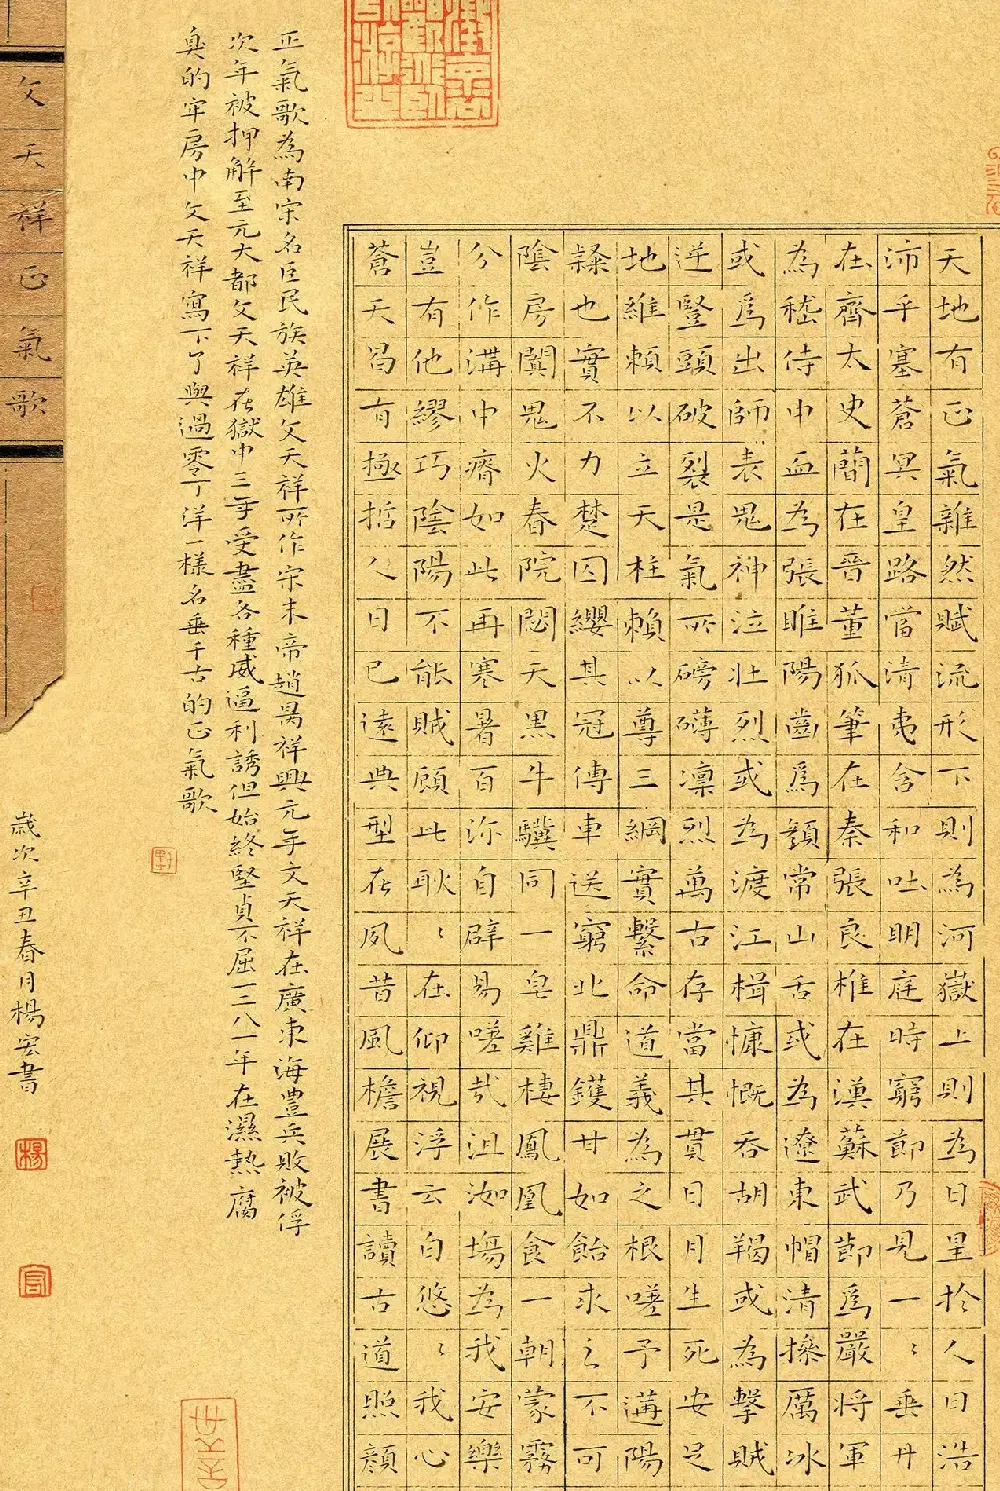 天地有正氣雜然賦流形下則為河嶽上則為日星於人曰浩
沛乎塞蒼冥皇路當清夷含和吐明庭時窮節乃見一〻垂丹
在齊太史簡在晉董狐筆在秦張良椎在漢蘇武節為嚴將軍
為嵇侍中血為張睢陽齒為顏常山舌或為遼東帽清操厲冰
或為出師表鬼神泣壯烈或為渡江楫慷慨吞胡羯或為擊賊
逆豎頭破裂是氣所磅礴凜烈萬古存當其貫日月生死安足
地維賴以立天柱賴以尊三綱實繫命道義為之根嗟予遘陽
隸也實不力楚囚纓其冠傳車送窮北鼎鑊甘如飴求之不可
陰房闃鬼火春院閟天黑牛驥同一皂雞棲鳳凰食一朝蒙霧
分作溝中瘠如此再寒暑百沴自辟易嗟哉沮洳場為我安樂
豈有他繆巧陰陽不能賊顧此耿〻在仰視浮云白悠〻我心
蒼天曷有極哲人日已遠典型在夙昔風檐展書讀古道照顏
正氣歌為南宋名臣民族英雄文天祥所作宋末帝趙昺祥興元年文天祥在廣東海豐兵敗被俘
次年被押解至元大都文天祥在獄中三年受盡各種威逼利誘但始終堅貞不屈一二八一年在濕熱腐
臭的牢房中文天祥寫下了與過零丁洋一樣名垂千古的正氣歌
歲次辛丑春月楊宏書
楊
文天祥正氣歌